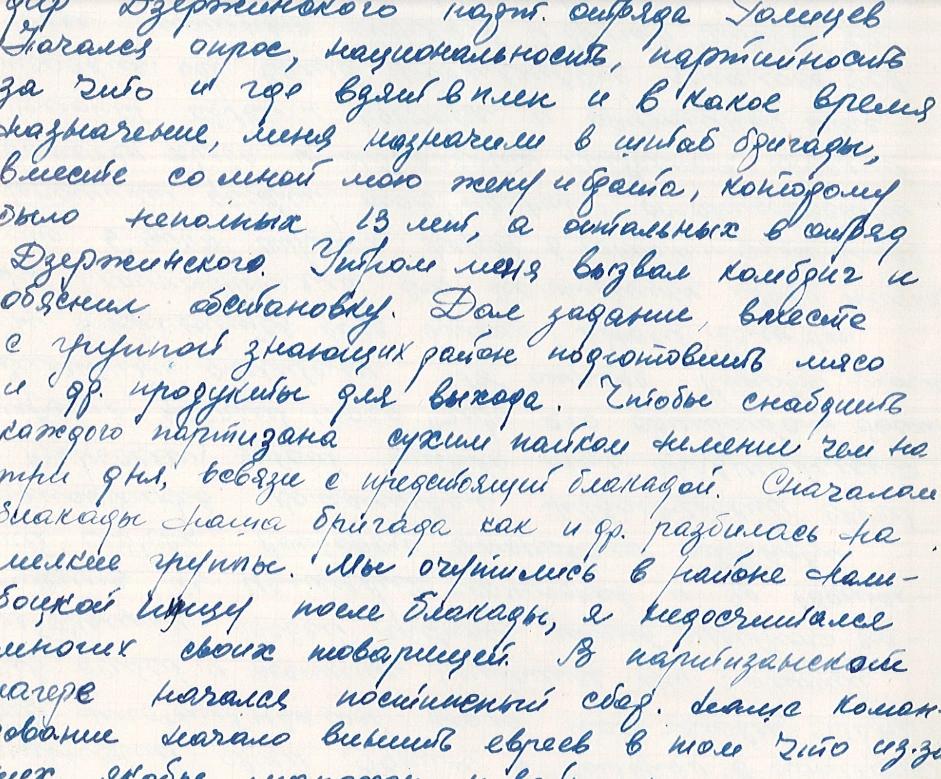 дир Дзержинского парт. отряда
Начался опрос, национальность, партийность
за что и где взят в плен и в какое время
назначение, меня назначили в штаб бригады,
вместе со мной мою жену и брата, которому
было неполных 13 лет, а остальных в отряд
Дзержинского. Утром меня вызвал комбриг и
обяснил обстановку. Дал задание, вместе
с группой знающих район подготовить мясо
и др. продукты для выхода. Чтобы снабдить
каждого партизана сухим пайком немение чем на
три дня, всвязи с предстоящий блакадой. Сначалом
блакады наша бригада как и др. разбилась на
мелкие группы. Мы очутились в районе Нали-
боцкой после блакады, я недосчитался
многих своих товарищей. В партизанском
лагере начался постписный сбор. наше коман-
дование начало винить евреев в том что из.за
них якобы